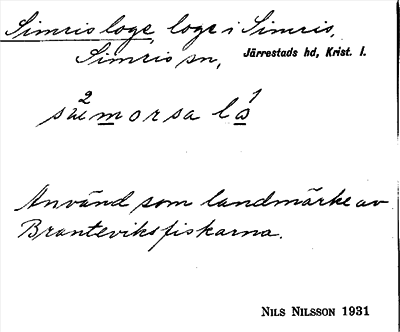 Simris loge, loge i Simris,
Simris sn, Järrestads hd, Krist. l.
Använd som landmärke av
Branteviksfiskarna.
NILS NILSSON 1931